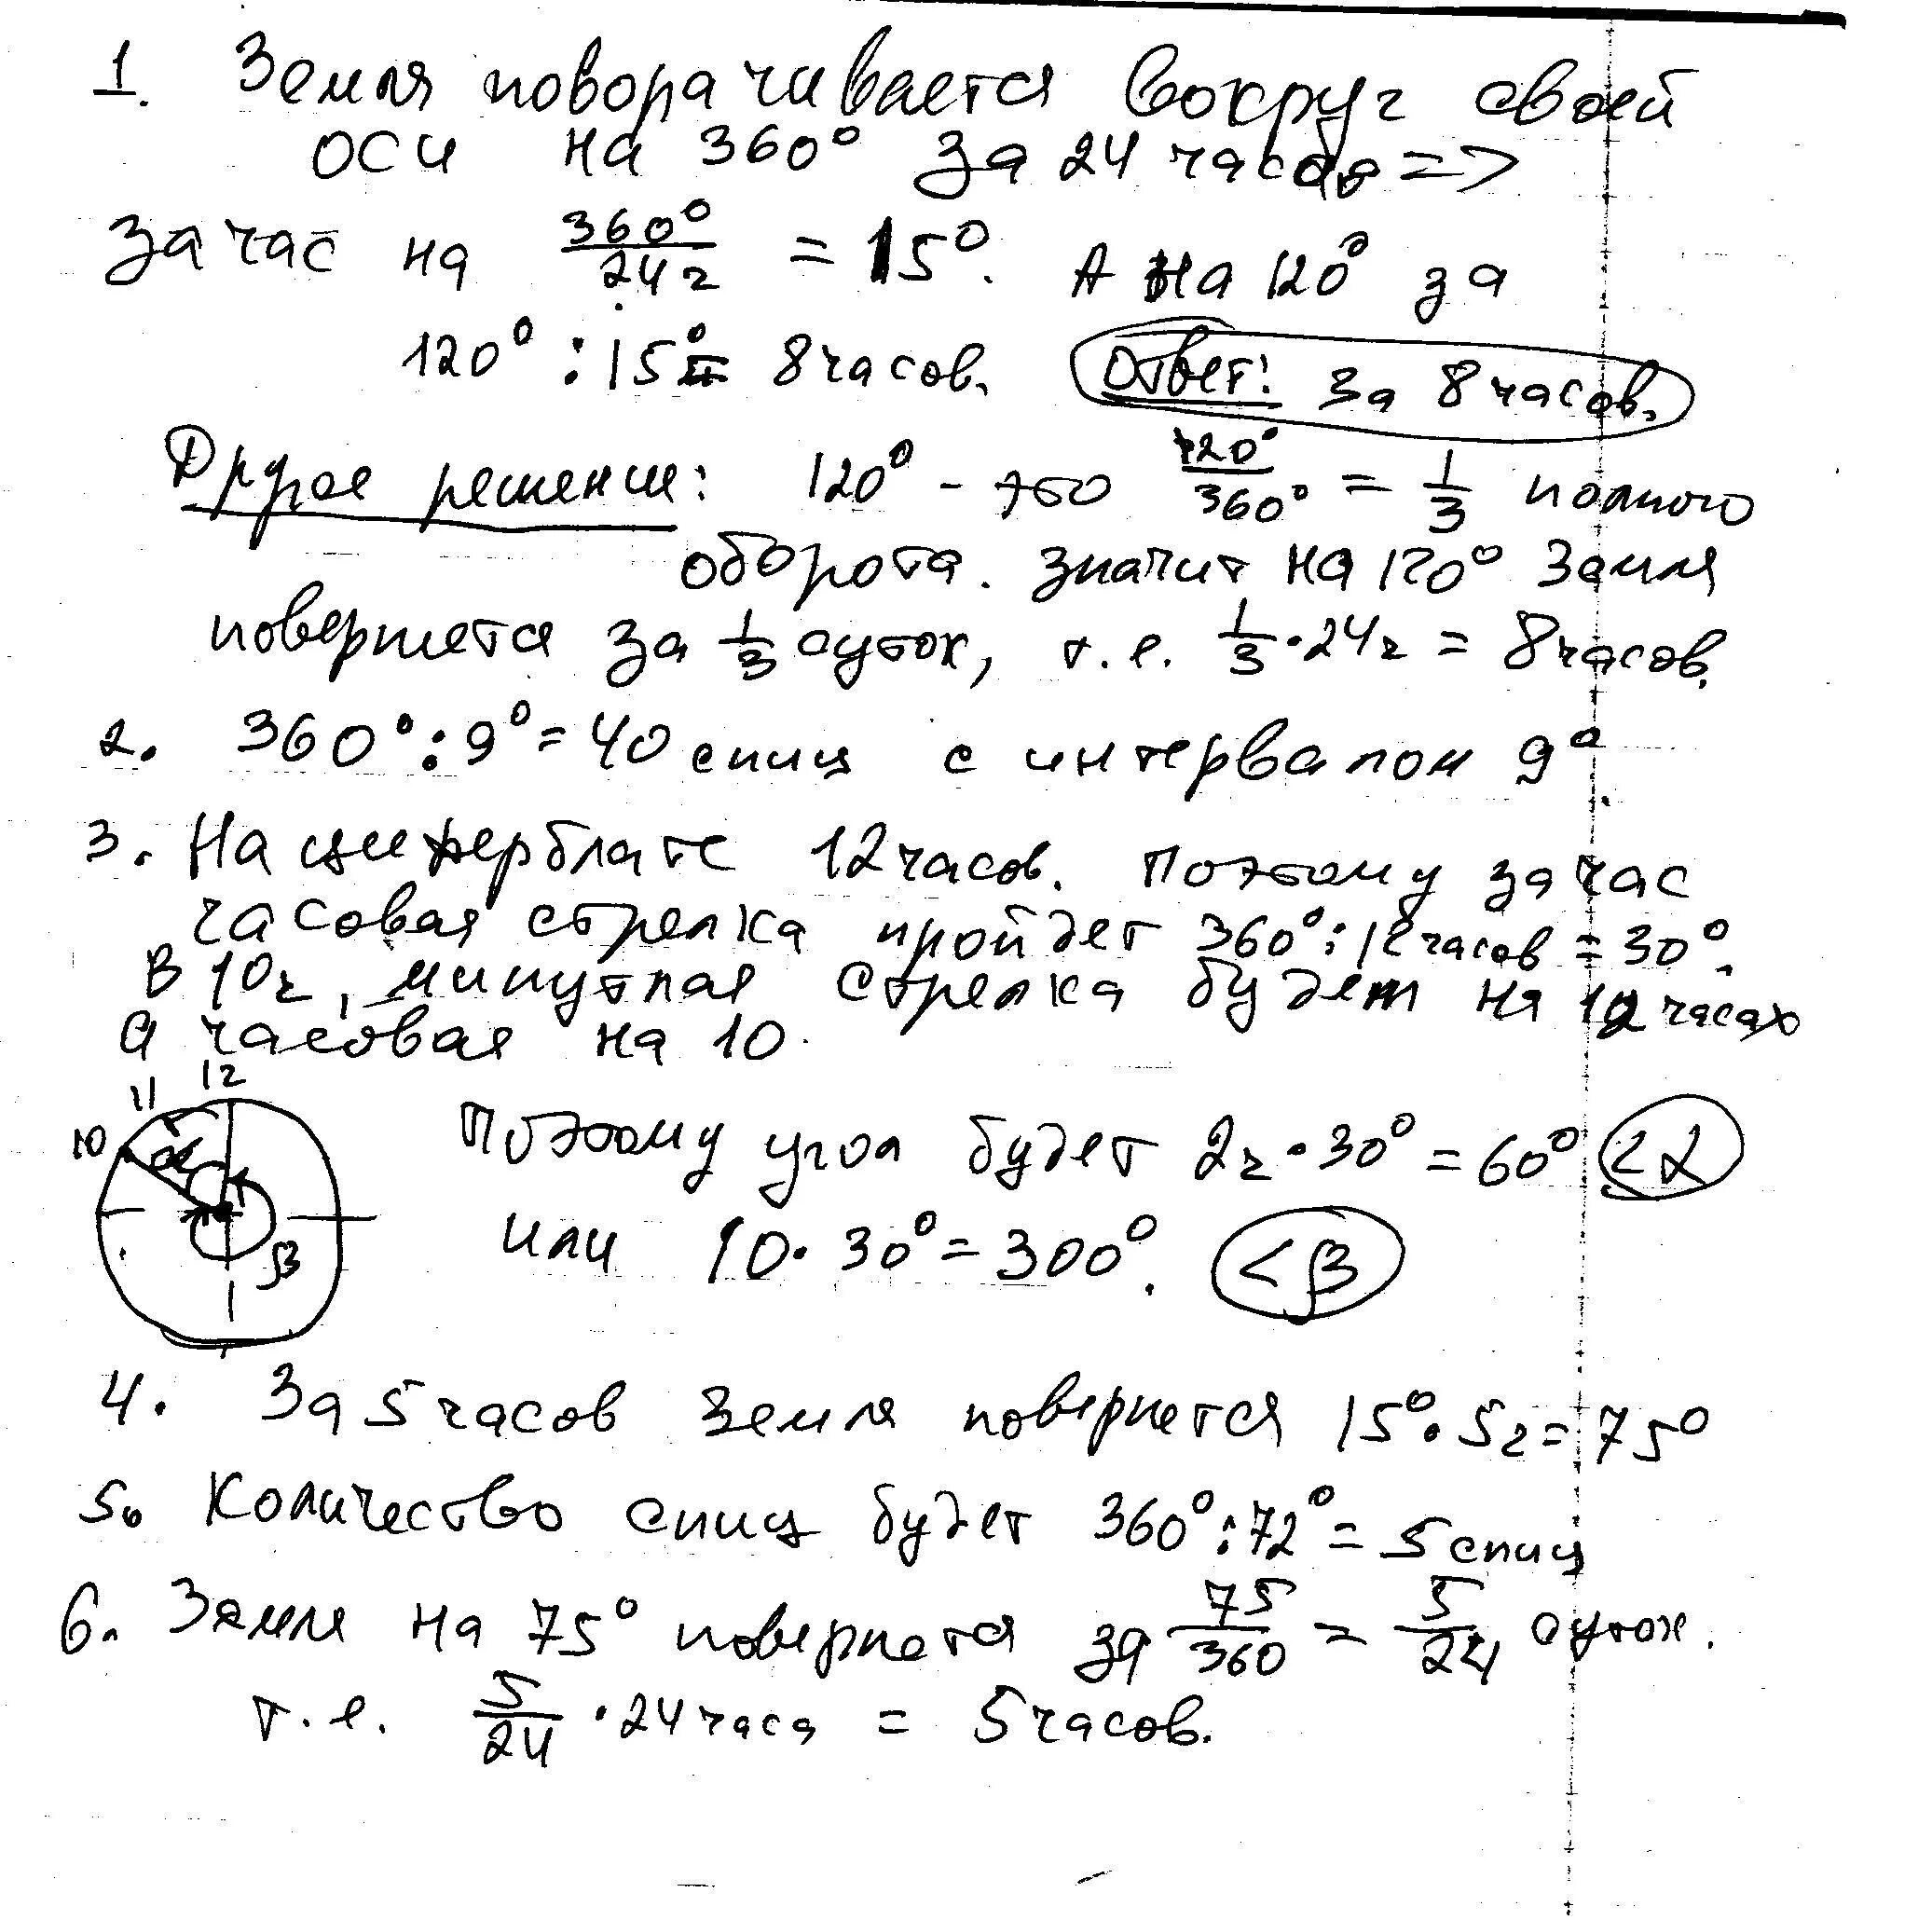 1. Земля поворачивается вокруг своей
оси на 360° за 24 часа =>
за час на 360°/24г = 15°. А на 120° за
120° : 15° = 8 часов. Ответ: за 8 часов.
Другое решение: 120° - это 120°/360° = 1/3 полного
оборота. значит на 120° Земля
повернется за 1/3 суток, т.е. 1/3 · 24г = 8 часов.
2. 360° : 9° = 40 спиц с интервалом 9°.
3. На циферблате 12 часов. Поэтому за час
часовая стрелка пройдет 360° : 12 часов = 30°.
В 10г, минутная стрелка будет на 12 часах
а часовая на 10.
12
11
10
α
β
Поэтому угол будет 2г · 30° = 60° <α
или 10 · 30° = 300°. <β
4. За 5 часов Земля повернется 15° · 5г = 75°
5. Количество спиц будет 360° : 72° = 5 спиц
6. Земля на 75° повернется за 75/360 = 5/24 суток.
т.е. 5/24 · 24 часа = 5 часов.